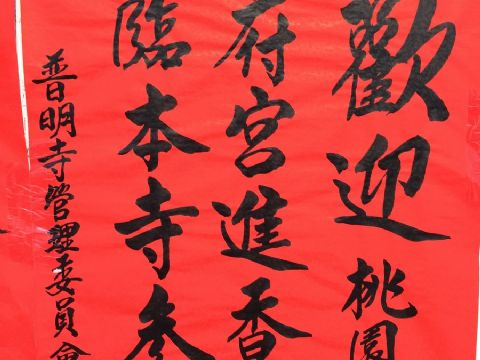 歡迎桃園
府宮進香
臨本寺參
普明寺管理委員會